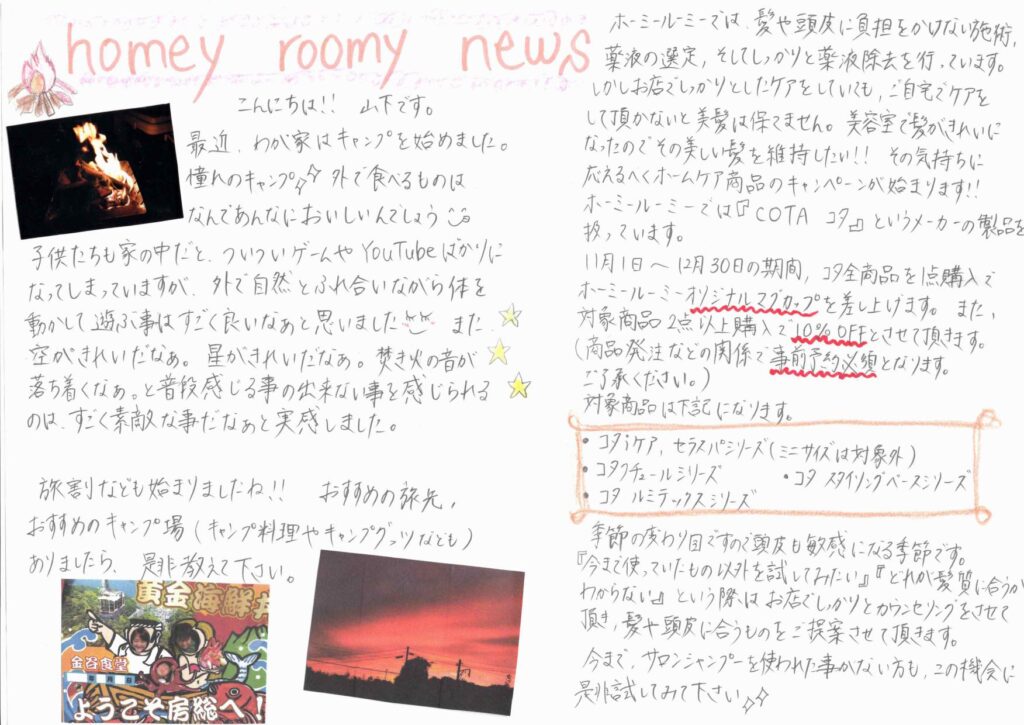 homey roomy news
こんにちは!! 山下です。
最近、わが家はキャンプを始めました。
憧れのキャンプ 外で食べるものは
なんであんなにおいしいんでしょう
子供たちも家の中だと、ついついゲームやYouTubeばかりに
なってしまっていますが、外で自然とふれ合いながら体を
動かして遊ぶ事はすごく良いなぁと思いました また、
空がきれいだなぁ。星がきれいだなぁ。焚き火の音が
落ち着くなぁ。と普段感じる事の出来ない事を感じられる
のは、すごく素敵な事だなぁと実感しました。
旅割なども始まりましたね!! おすすめの旅先、
おすすめのキャンプ場(キャンプ料理やキャンプグッツなども)
ありましたら、是非教えて下さい。
黄金海鮮丼
金谷食堂
年 月 日
ようこそ房総へ!
ホーミールーミーでは、髪や頭皮に負担をかけない施術、
薬液の選定、そしてしっかりと薬液除去を行っています。
しかしお店でしっかりとしたケアをしていても、ご自宅でケアを
して頂かないと美髪は保てません。美容室で髪がきれいに
なったのでその美しい髪を維持したい!! その気持ちに
応えるべくホームケア商品のキャンペーンが始まります!!
ホーミールーミーでは『COTA コタ』というメーカーの製品を
扱っています。
11月1日～12月30日の期間、コタ全商品を1点購入で
ホーミールーミーオリジナルマグカップを差し上げます。また、
対象商品2点以上購入で10%OFFとさせて頂きます。
(商品発注などの関係で事前予約必須となります。
ご了承ください。)
対象商品は下記になります。
・コタiケア、セラスパシリーズ(ミニサイズは対象外)
・コタクチュールシリーズ ・コタ スタイリングベースシリーズ
・コタ ルミテックスシリーズ
季節の変わり目ですので頭皮も敏感になる季節です。
『今まで使っていたもの以外を試してみたい』『どれが髪質に合うか
わからない』という際はお店でしっかりとカウンセリングをさせて
頂き、髪や頭皮に合うものをご提案させて頂きます。
今まで、サロンシャンプーを使われた事がない方も、この機会に
是非試してみて下さい